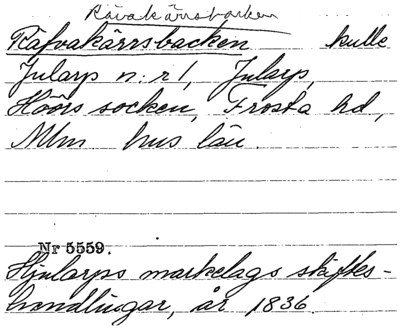 Rävakärrsbacken
Räfvakärrsbacken kulle
Jularp n:r 1, Jularp,
Höörs socken, Frosta hd,
Mlm hus län.
Nr 5559.
Hjularps markelags skiftes-
handlingar, år 1836.